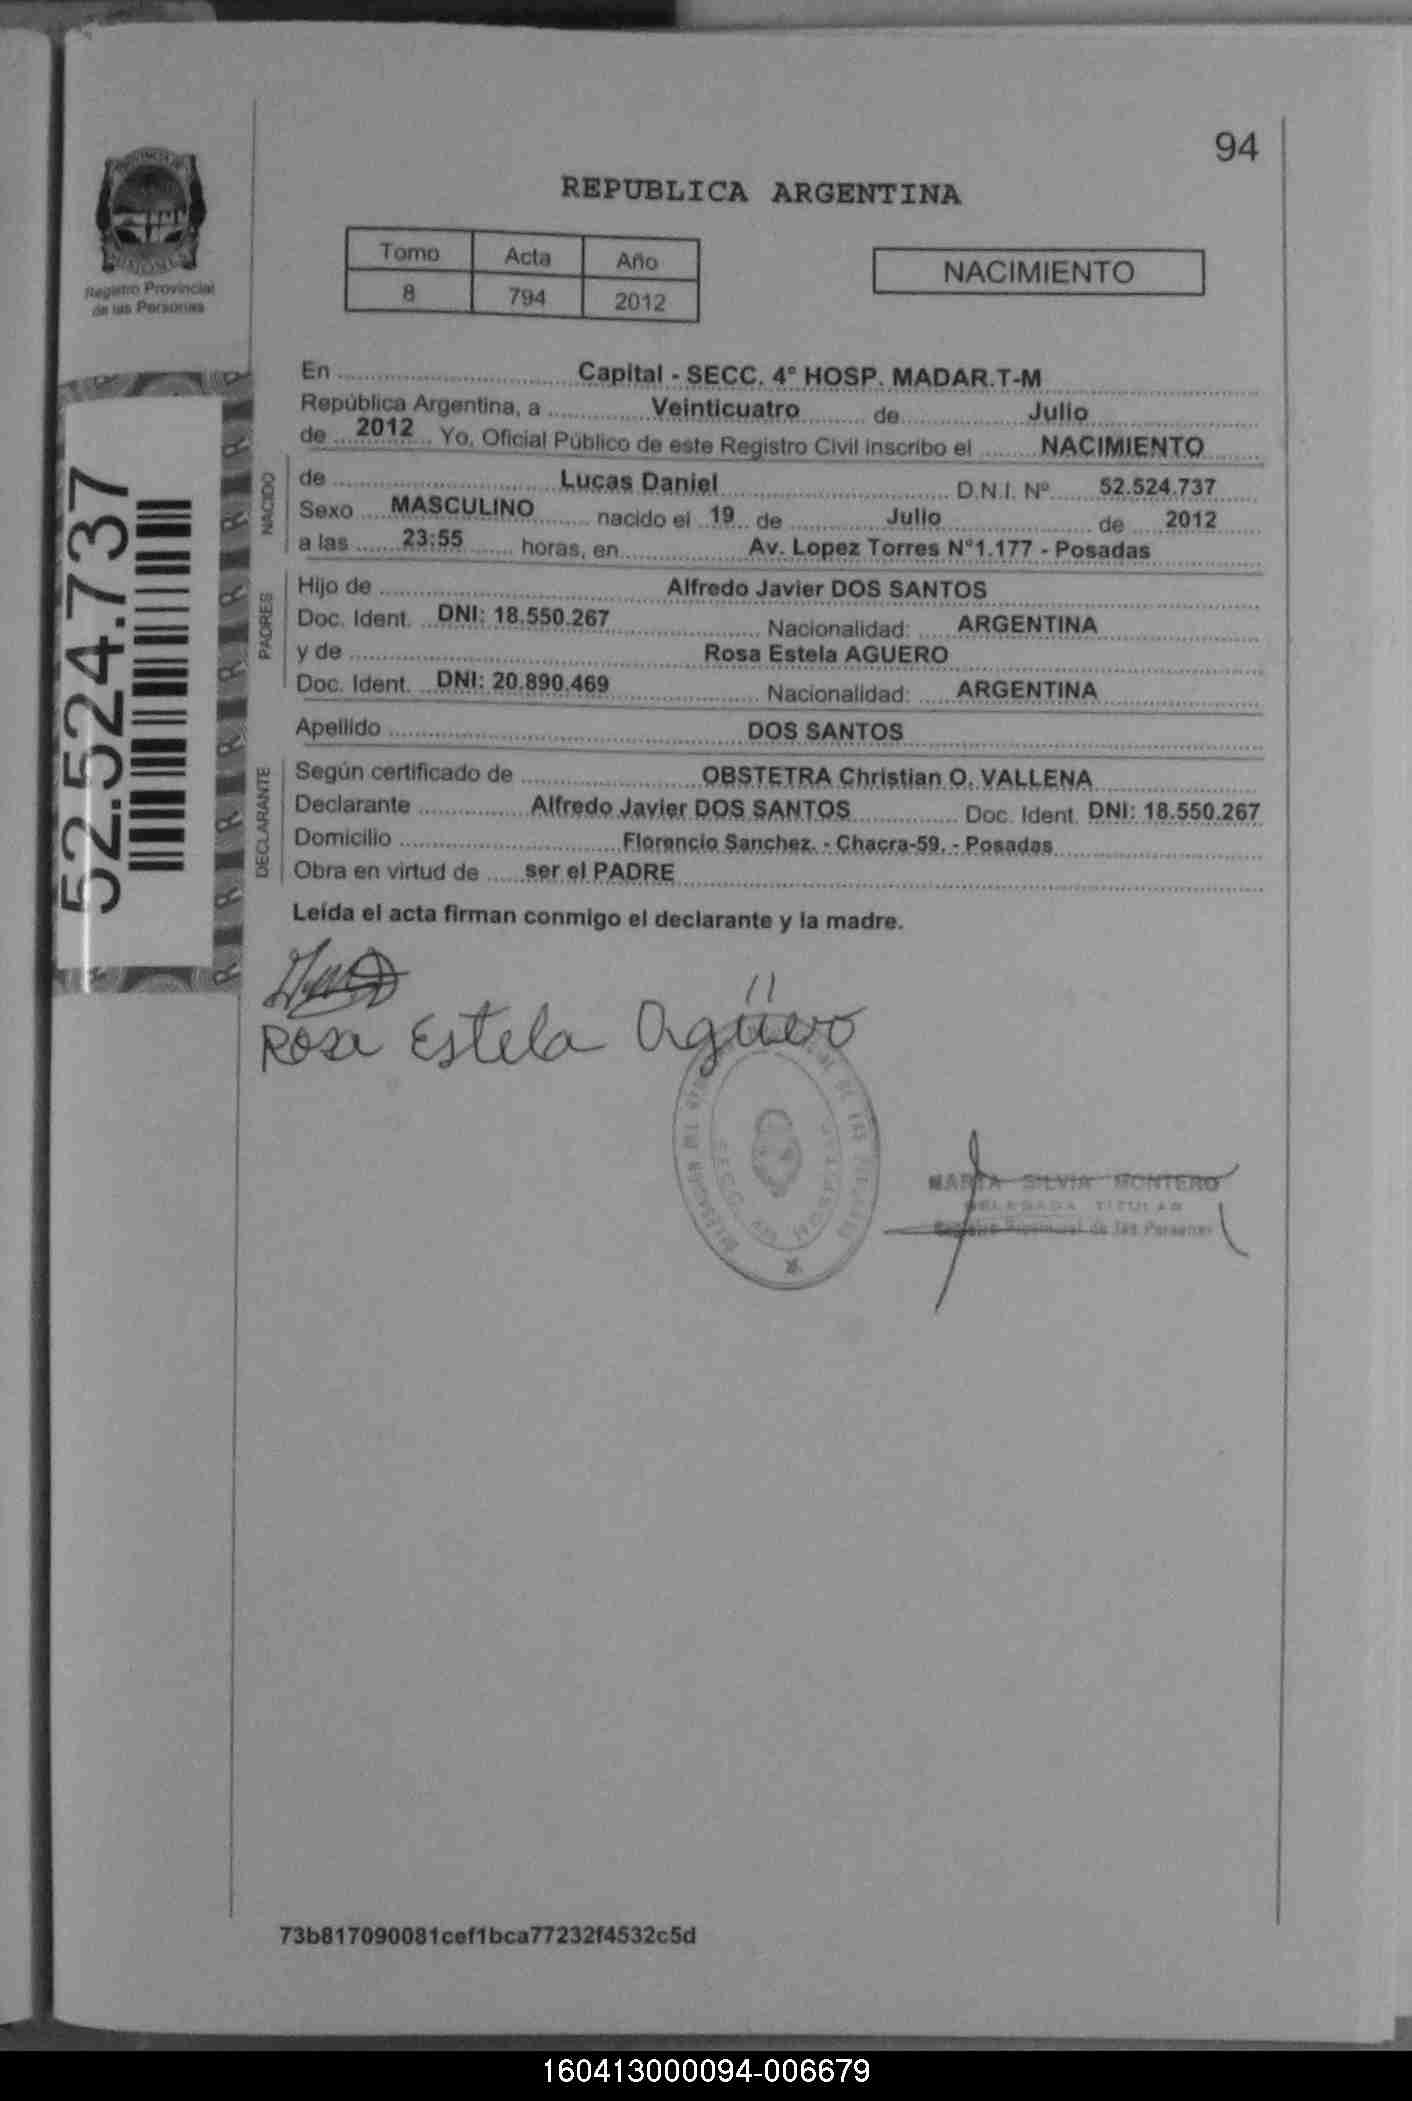 94
PROVINCIA DE
MISIONES
Registro Provincial
de las Personas
REPUBLICA ARGENTINA
Tomo Acta Año
8 794 2012
NACIMIENTO
52.524.737
En Capital - SECC. 4° HOSP. MADAR.T-M
República Argentina, a Veinticuatro de Julio
de 2012 Yo, Oficial Público de este Registro Civil inscribo el NACIMIENTO
NACIDO
de Lucas Daniel D.N.I. Nº 52.524.737
Sexo MASCULINO nacido el 19 de Julio de 2012
a las 23:55 horas, en Av. Lopez Torres N°1.177 - Posadas
PADRES
Hijo de Alfredo Javier DOS SANTOS
Doc. Ident. DNI: 18.550.267 Nacionalidad: ARGENTINA
y de Rosa Estela AGUERO
Doc. Ident. DNI: 20.890.469 Nacionalidad: ARGENTINA
Apellido DOS SANTOS
DECLARANTE
Según certificado de OBSTETRA Christian O. VALLENA
Declarante Alfredo Javier DOS SANTOS Doc. Ident. DNI: 18.550.267
Domicilio Florencio Sanchez. - Chacra-59. - Posadas
Obra en virtud de ser el PADRE
Leída el acta firman conmigo el declarante y la madre.
Rosa Estela Agüero
MARTA SILVIA MONTERO
DELEGADA TITULAR
Registro Provincial de las Personas
73b817090081cef1bca77232f4532c5d
160413000094-006679